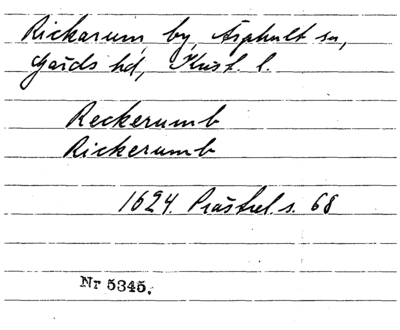 Rickarum, by, Äsphult sn,
Gärds hd, Krist. l.
Reckerumb
Rickerumb
1624. Prästrel. s. 68
Nr 5345.